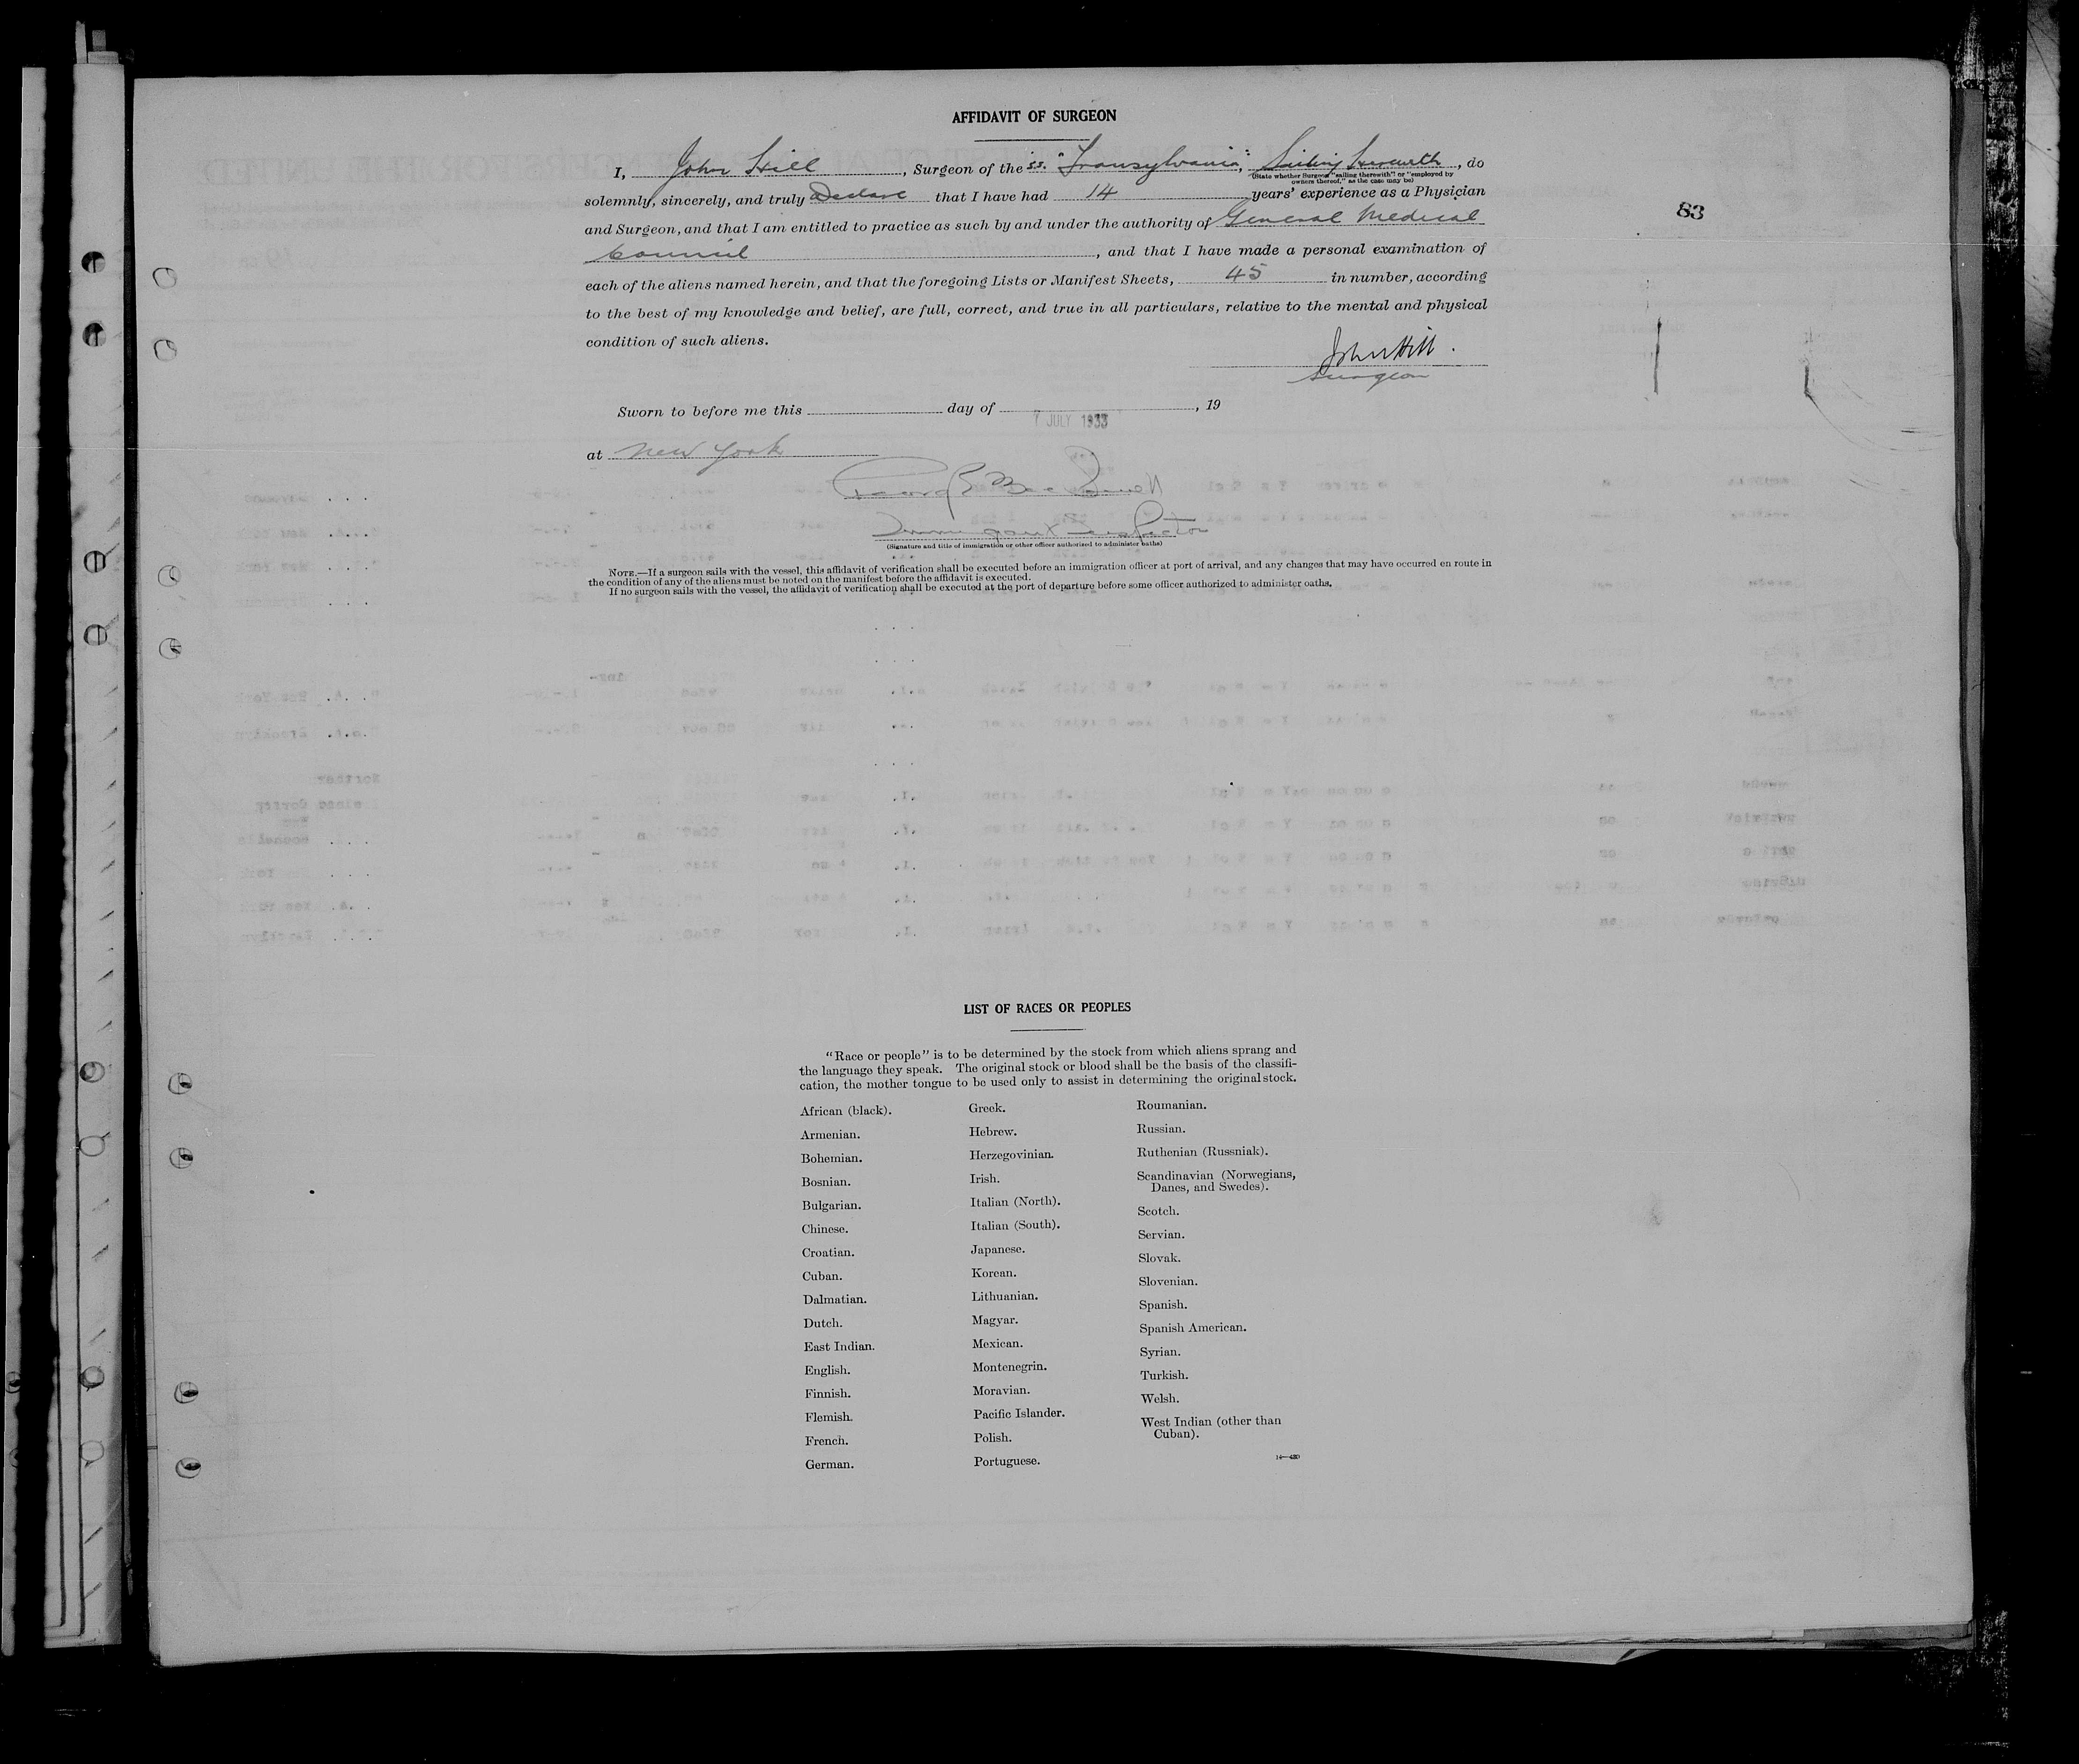 AFFIDAVIT OF SURGEON
I, John Hill, Surgeon of the ss. "Transylvania", Sailing therewith, do
(State whether Surgeon "sailing therewith" or "employed by
owners thereof," as the case may be)
solemnly, sincerely, and truly Declare that I have had 14 years' experience as a Physician
83
and Surgeon, and that I am entitled to practice as such by and under the authority of General Medical
Council, and that I have made a personal examination of
each of the aliens named herein, and that the foregoing Lists or Manifest Sheets, 45 in number, according
to the best of my knowledge and belief, are full, correct, and true in all particulars, relative to the mental and physical
condition of such aliens.
John Hill.
Surgeon
Sworn to before me this day of , 19
7 JULY 1933
at New York
Immigrant Inspector
(Signature and title of immigration or other officer authorized to administer oaths)
NOTE.—If a surgeon sails with the vessel, this affidavit of verification shall be executed before an immigration officer at port of arrival, and any changes that may have occurred en route in
the condition of any of the aliens must be noted on the manifest before the affidavit is executed.
If no surgeon sails with the vessel, the affidavit of verification shall be executed at the port of departure before some officer authorized to administer oaths.
LIST OF RACES OR PEOPLES
"Race or people" is to be determined by the stock from which aliens sprang and
the language they speak. The original stock or blood shall be the basis of the classifi-
cation, the mother tongue to be used only to assist in determining the original stock.
African (black).
Armenian.
Bohemian.
Bosnian.
Bulgarian.
Chinese.
Croatian.
Cuban.
Dalmatian.
Dutch.
East Indian.
English.
Finnish.
Flemish.
French.
German.
Greek.
Hebrew.
Herzegovinian.
Irish.
Italian (North).
Italian (South).
Japanese.
Korean.
Lithuanian.
Magyar.
Mexican.
Montenegrin.
Moravian.
Pacific Islander.
Polish.
Portuguese.
Roumanian.
Russian.
Ruthenian (Russniak).
Scandinavian (Norwegians,
Danes, and Swedes).
Scotch.
Servian.
Slovak.
Slovenian.
Spanish.
Spanish American.
Syrian.
Turkish.
Welsh.
West Indian (other than
Cuban).